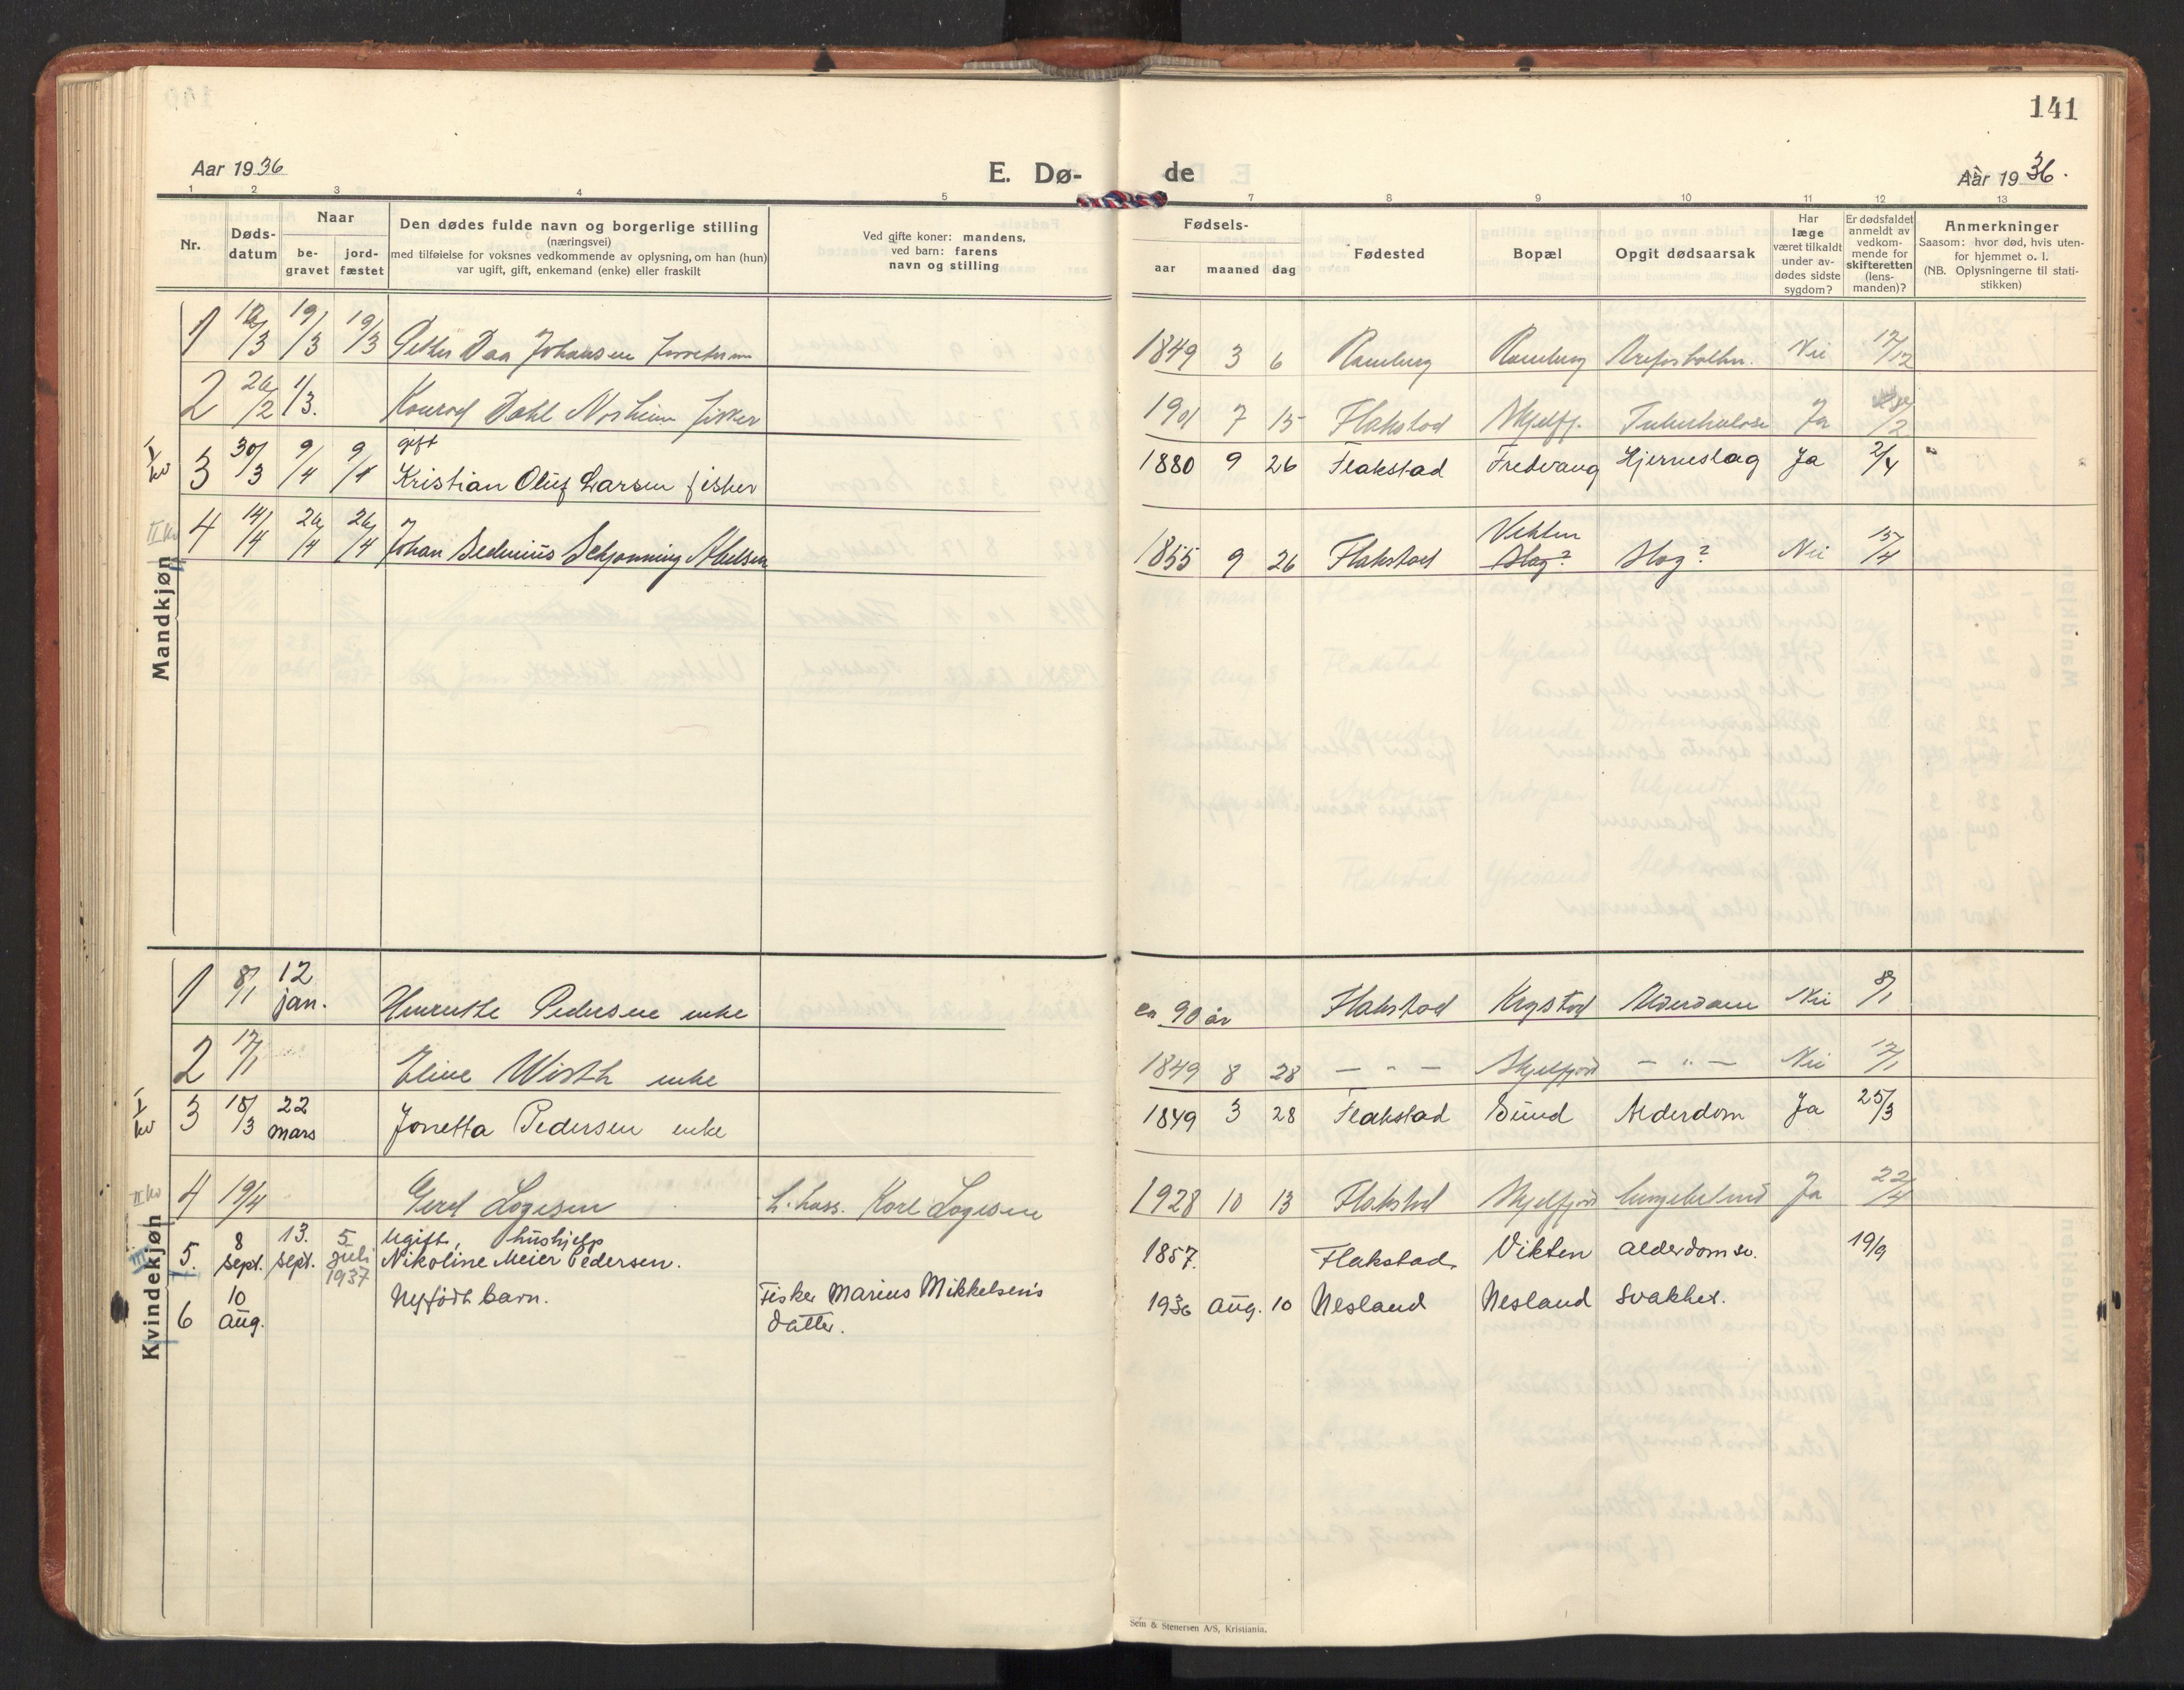 141
Aar 1936
E. Dø-
de
Aar 1936.
1 2 3 4 5 7 8 9 10 11 12 13
Nr.
Døds-
datum
Naar
be-
gravet
jord-
fæstet
Den dødes fulde navn og borgerlige stilling
(næringsvei)
med tilføielse for voksnes vedkommende av oplysning, om han (hun)
var ugift, gift, enkemand (enke) eller fraskilt
Ved gifte koner: mandens,
ved barn: farens
navn og stilling
Fødsels-
aar maaned dag
Fødested
Bopæl
Opgit dødsaarsak
Har
læge
været tilkaldt
under av-
dødes sidste
sygdom?
Er dødsfaldet
anmeldt av
vedkom-
mende for
skifteretten
(lens-
manden)?
Anmerkninger
Saasom: hvor død, hvis uten-
for hjemmet o. l.
(NB. Oplysningerne til stati-
stikken)
Mandkjøn
1 /3 19/3 19/3 Peder Daa Johansen 1849 3 6 Ramberg Ramberg Nei 17/12
2 26/2 1/3. Konrad Dahl Norheim fisker 1901 7 15 Flakstad Skjelfj. Tuberkulose Ja /2
I kv
gift
3 30/3 9/4 9/4 Kristian Oluf Larsen fisker 1880 9 26 Flakstad Fredvang Hjerneslag Ja 2/4
II kv
Vikten
4 14/4 26/4 26/4 Johan Schjønning 1855 9 26 Flakstad Slag? Slag? Nei 15/4
Kvindekjøn
1 8/1 12 jan. Pedersen enke ca 90 år Flakstad Krystad Alderdom Nei 8/1
2 17/1 Eline Wirth enke 1849 8 28 — " — Skjelfjord — " — Nei 17/1
I kv
3 18/3 22 mars Jonetta Pedersen enke 1849 3 28 Flakstad Sund Alderdom Ja 25/3
II kv
4 19/4 Gerd Logesen Karl Logesen 1928 10 13 Flakstad Skjelfjord Ja 22/4
III
Ugift, hushjelp
5. 8 sept. 13. sept. 5 juli 1937 Nikoline Meier Pedersen. 1857. Flakstad. Vikten alderdomsv. 19/9
6 10 aug. Nyfødt barn. Fisker Marius Mikkelsens 1936 aug. 10 Nesland Nesland Svakhet.
datter.
Sem & Stenersen A/S, Kristiania.